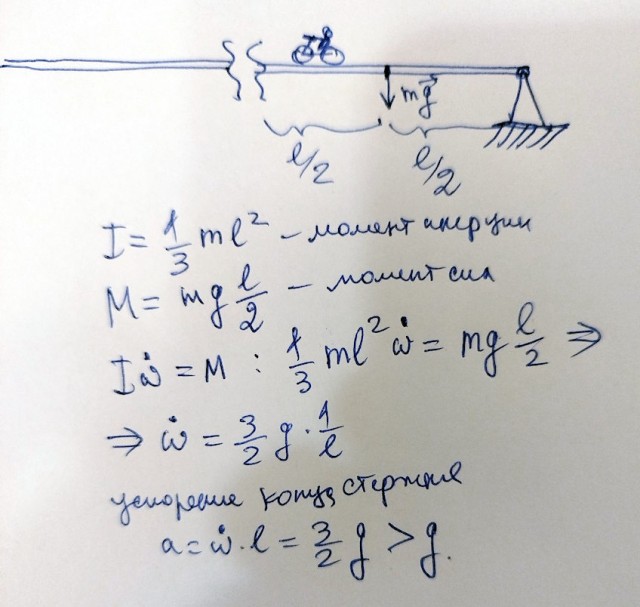 mg⃗
l/2 l/2
I = 1/3 ml² – момент инерции
M = mg l/2 – момент сил
Iω̇ = M : 1/3 ml² ω̇ = mg l/2 ⇒
⇒ ω̇ = 3/2 g · 1/l
ускорение конца стержня
a = ω̇ · l = 3/2 g > g.